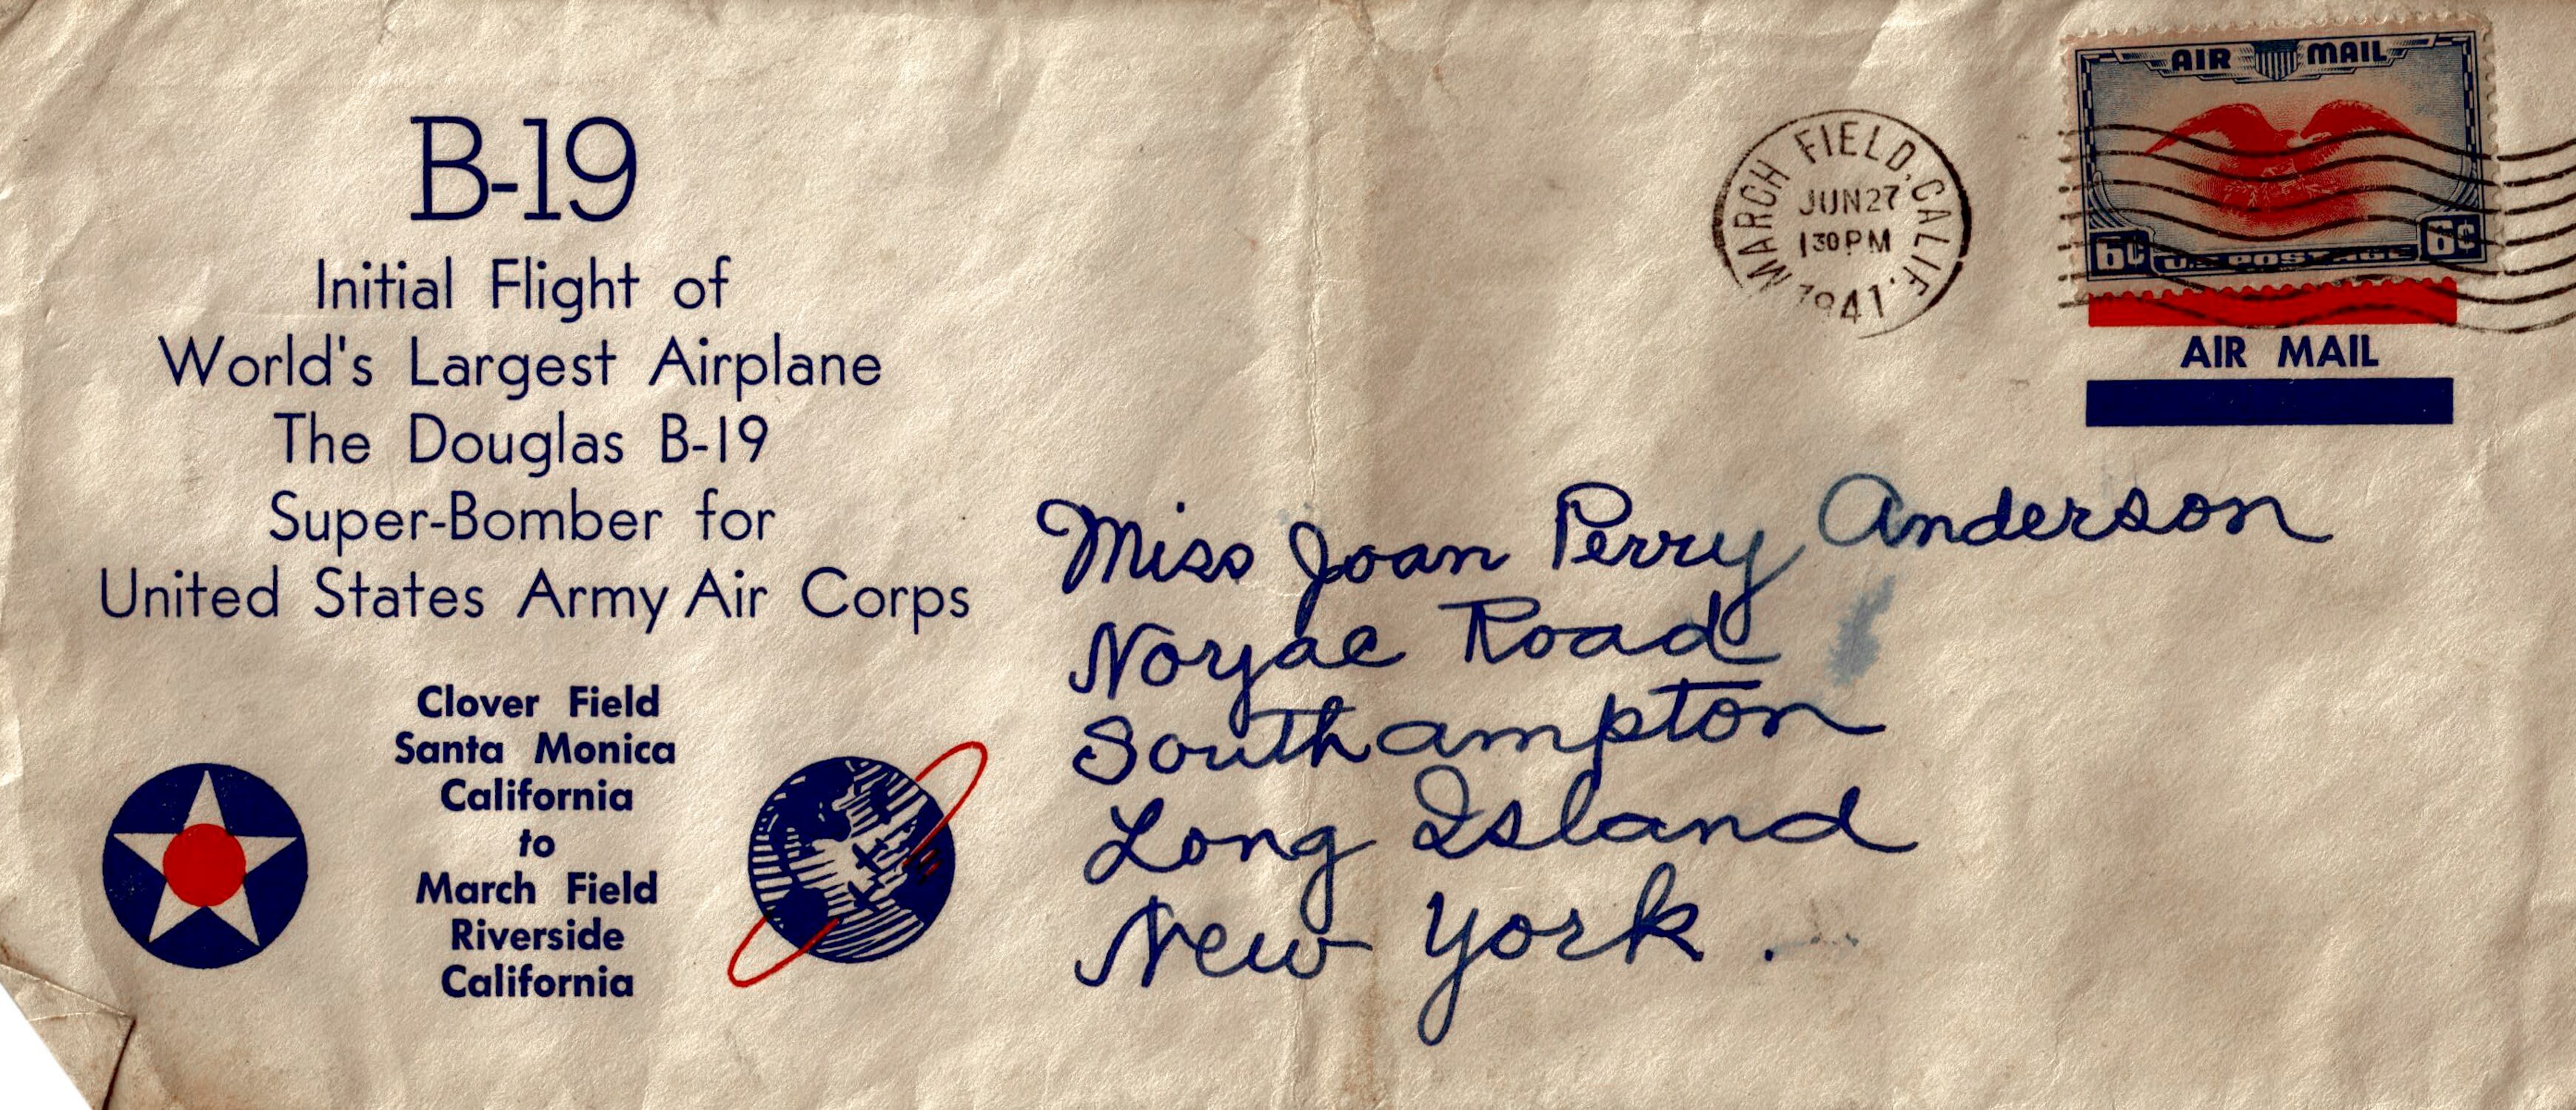 B-19
Initial Flight of
World's Largest Airplane
The Douglas B-19
Super-Bomber for
United States Army Air Corps
Clover Field
Santa Monica
California
to
March Field
Riverside
California
MARCH FIELD, CALIF.
JUN 27
1 30 PM
1941
AIR MAIL
6¢ U.S. POSTAGE 6¢
AIR MAIL
Miss Joan Perry Anderson
Noyac Road
Southampton
Long Island
New York.